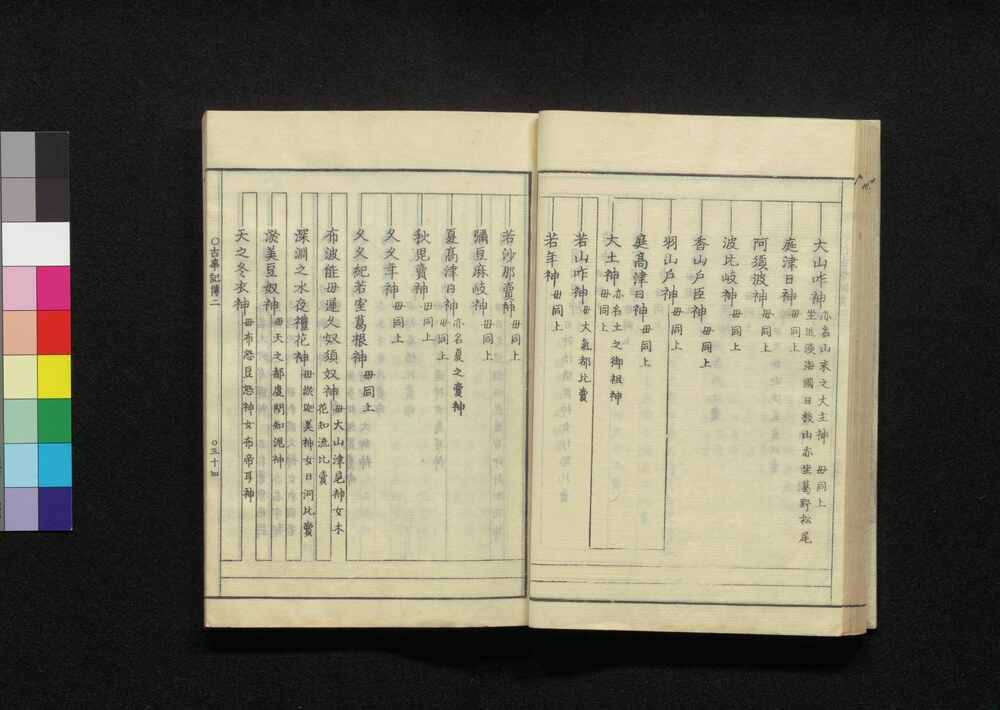 大山咋神 亦名山末之大主神 毋同上
坐近淡海國日枝山亦坐葛野松尾
庭津日神 毋同上
阿須波神 毋同上
波比岐神 毋同上
香山戸臣神 毋同上
羽山戸神 毋同上
庭髙津日神 毋同上
大土神 亦名土之御祖神
毋同上
若山咋神 毋大氣都比賣
若年神 毋同上
若沙那賣神 毋同上
彌豆麻岐神 毋同上
夏髙津日神 亦名夏之賣神
毋同上
秋毘賣神 毋同上
久久年神 毋同上
久久紀若室葛根神 毋同上
布波能毋遲久奴須奴神 毋大山津見神女木
花知流比賣
深淵之水夜禮花神 毋淤迦美神女日河比賣
淤美豆奴神 毋天之都度閇知泥神
天之冬衣神 毋布怒豆怒神女布帝耳神
○古事記傳二
○三十四